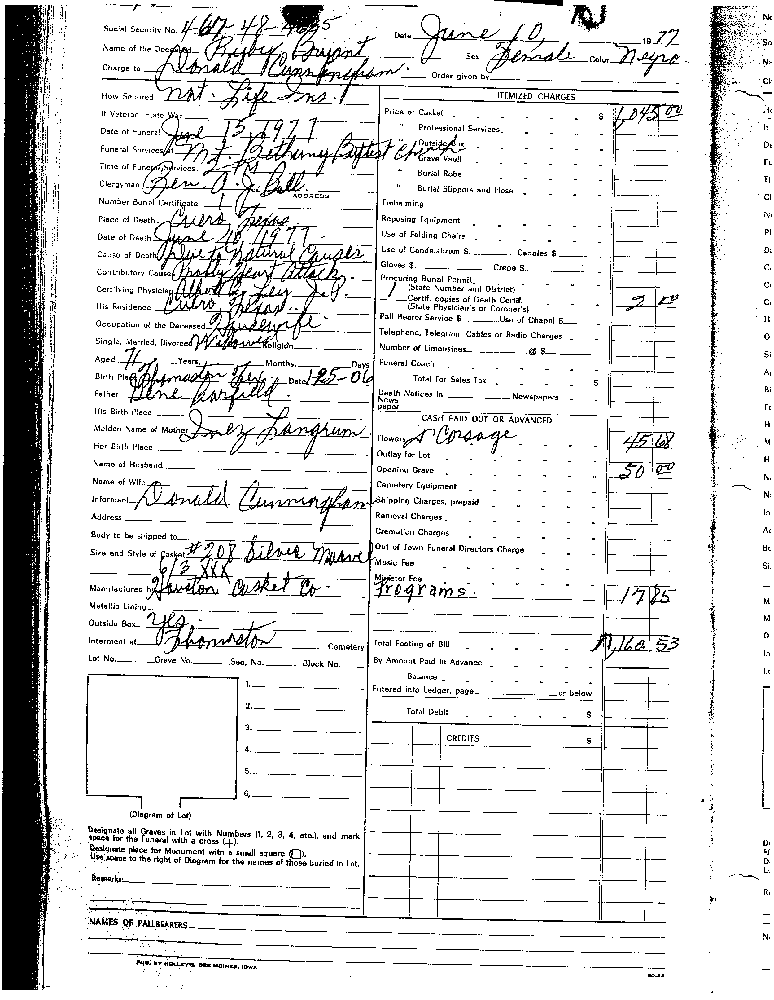 Social Security No. 467-48-
Date June 10, 1977
Name of the Deceased Ruby Bryant
Sex Female Color Negro
Charge to Donald Cunningham
Order given by
How Secured Nat. Life Ins.
If Veteran State War
Date of Funeral June 13, 1977
Funeral Services at Mt. Bethany Baptist Church
Time of Funeral Services 2
Clergyman Rev. A. J. Bell
ADDRESS
Number Burial Certificate
Place of Death Cuero Texas
Date of Death June 10, 1977
Cause of Death Due to Natural Causes
Contributory Cause Heart Attack
Certifying Physician Albert Ley J.P.
His Residence Cuero Texas
Occupation of the Deceased Housewife
Single, Married, Divorced Widowed Religion
Aged 71 Years, Months, Days
Birth Place Thomaston Tex. Date 1-25-06
Father Gene Garfield
His Birth Place
Maiden Name of Mother Inez Langrum
Her Birth Place
Name of Husband
Name of Wife
Informant Donald Cunningham
Address
Body to be shipped to
Size and Style of Casket #208 Silver
6/3 XXX
Manufactured by Houston Casket Co.
Metallic Lining
Outside Box Yes
Interment at Thomaston Cemetery
Lot No. Grave No. Sec. No. Block No.
1.
2.
3.
4.
5.
6.
(Diagram of Lot)
Designate all Graves in Lot with Numbers (1, 2, 3, 4, etc.), and mark
space for the Funeral with a cross (+).
Designate place for Monument with a small square (☐).
Use space to the right of Diagram for the names of those buried in Lot.
Remarks:
ITEMIZED CHARGES
Price of Casket $ 1,045 00
" Professional Services
" Outside Box
" Grave Vault
" Burial Robe
" Burial Slippers and Hose
Embalming
Reposing Equipment
Use of Folding Chairs
Use of Candelabrum $ Candles $
Gloves $ Crepe $
Procuring Burial Permit
(State Number and District)
1 Certif. copies of Death Certif. 2 00
(State Physician's or Coroner's)
Pall Bearer Service $ Use of Chapel $
Telephone, Telegram Cables or Radio Charges
Number of Limousines @ $
Funeral Coach
Total for Sales Tax $
Death Notices in Newspapers
News
paper
CASH PAID OUT OR ADVANCED
Flowers & Corsage 45 68
Outlay for Lot
Opening Grave 50 00
Cemetery Equipment
Shipping Charges, prepaid
Removal Charges
Cremation Charges
Out of Town Funeral Directors Charge
Music Fee
Minister Fee
Programs 17 85
Total Footing of Bill 1,160 53
By Amount Paid in Advance
Balance
Entered into Ledger, page or below
Total Debit $
CREDITS $
NAMES OF PALLBEARERS
PUB. BY HOLLEY'S, DES MOINES, IOWA